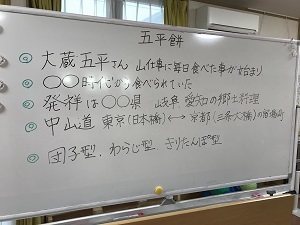 五平餅
◎ 大蔵五平さん 山仕事に毎日食べた事が始まり
◎ ○○時代から食べられていた
◎ 発祥は○○県 岐阜 愛知の郷土料理
◎ 中山道 東京(日本橋)←→京都(三条大橋)の宿場町
◎ 団子型、わらじ型、きりたんぽ型